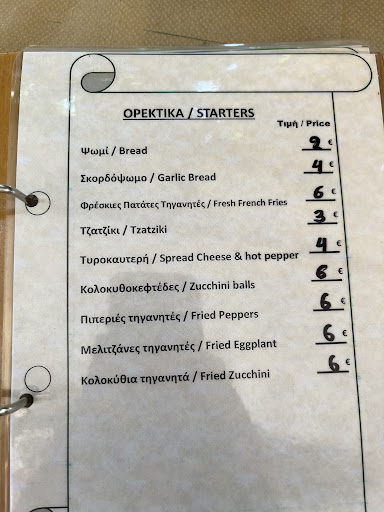 ΟΡΕΚΤΙΚΑ / STARTERS
Τιμή / Price
Ψωμί / Bread 2 €
Σκορδόψωμο / Garlic Bread 4 €
Φρέσκιες Πατάτες Τηγανητές / Fresh French Fries 6 €
Τζατζίκι / Tzatziki 3 €
Τυροκαυτερή / Spread Cheese & hot pepper 4 €
Κολοκυθοκεφτέδες / Zucchini balls 6 €
Πιπεριές τηγανητές / Fried Peppers 6 €
Μελιτζάνες τηγανητές / Fried Eggplant 6 €
Κολοκύθια τηγανητά / Fried Zucchini 6 €